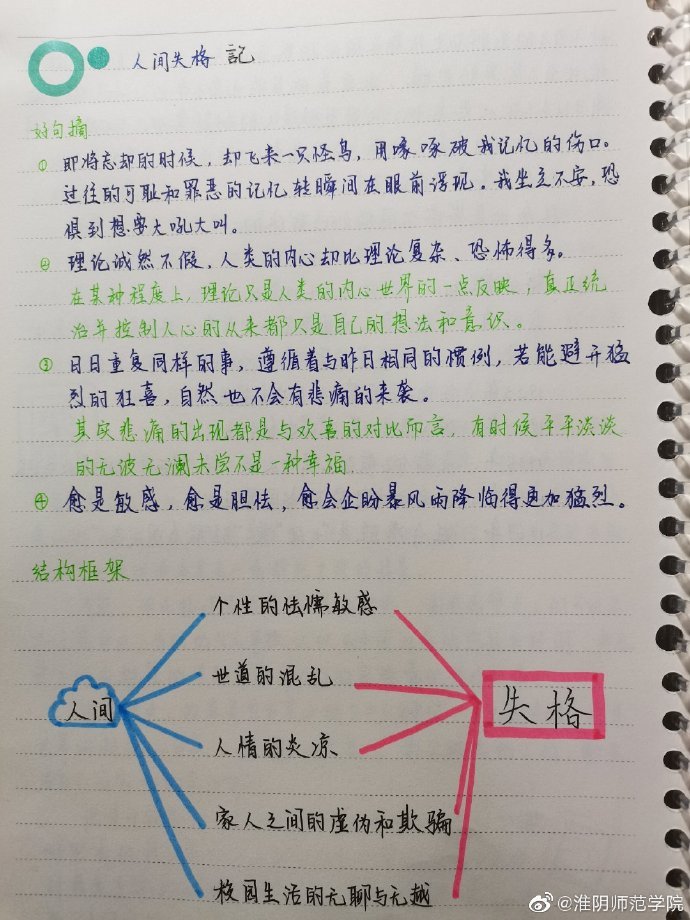 人间失格 記
好句摘
① 即将忘却的时候，却飞来一只怪鸟，用喙啄破我记忆的伤口。
过往的可耻和罪恶的记忆转瞬间在眼前浮现。我坐立不安，恐
惧到想要大吼大叫。
② 理论诚然不假，人类的内心却比理论复杂、恐怖得多。
在某种程度上，理论只是人类的内心世界的一点反映；真正统
治并控制人心的从来都只是自己的想法和意识。
③ 日日重复同样的事，遵循着与昨日相同的惯例，若能避开猛
烈的狂喜，自然也不会有悲痛的来袭。
其实悲痛的出现都是与欢喜的对比而言，有时候平平淡淡
的无波无澜未尝不是一种幸福
④ 愈是敏感，愈是胆怯，愈会企盼暴风雨降临得更加猛烈。
结构框架
个性的怯懦敏感
世道的混乱
人间
失格
人情的炎凉
家人之间的虚伪和欺骗
校园生活的无聊与无趣
@淮阴师范学院